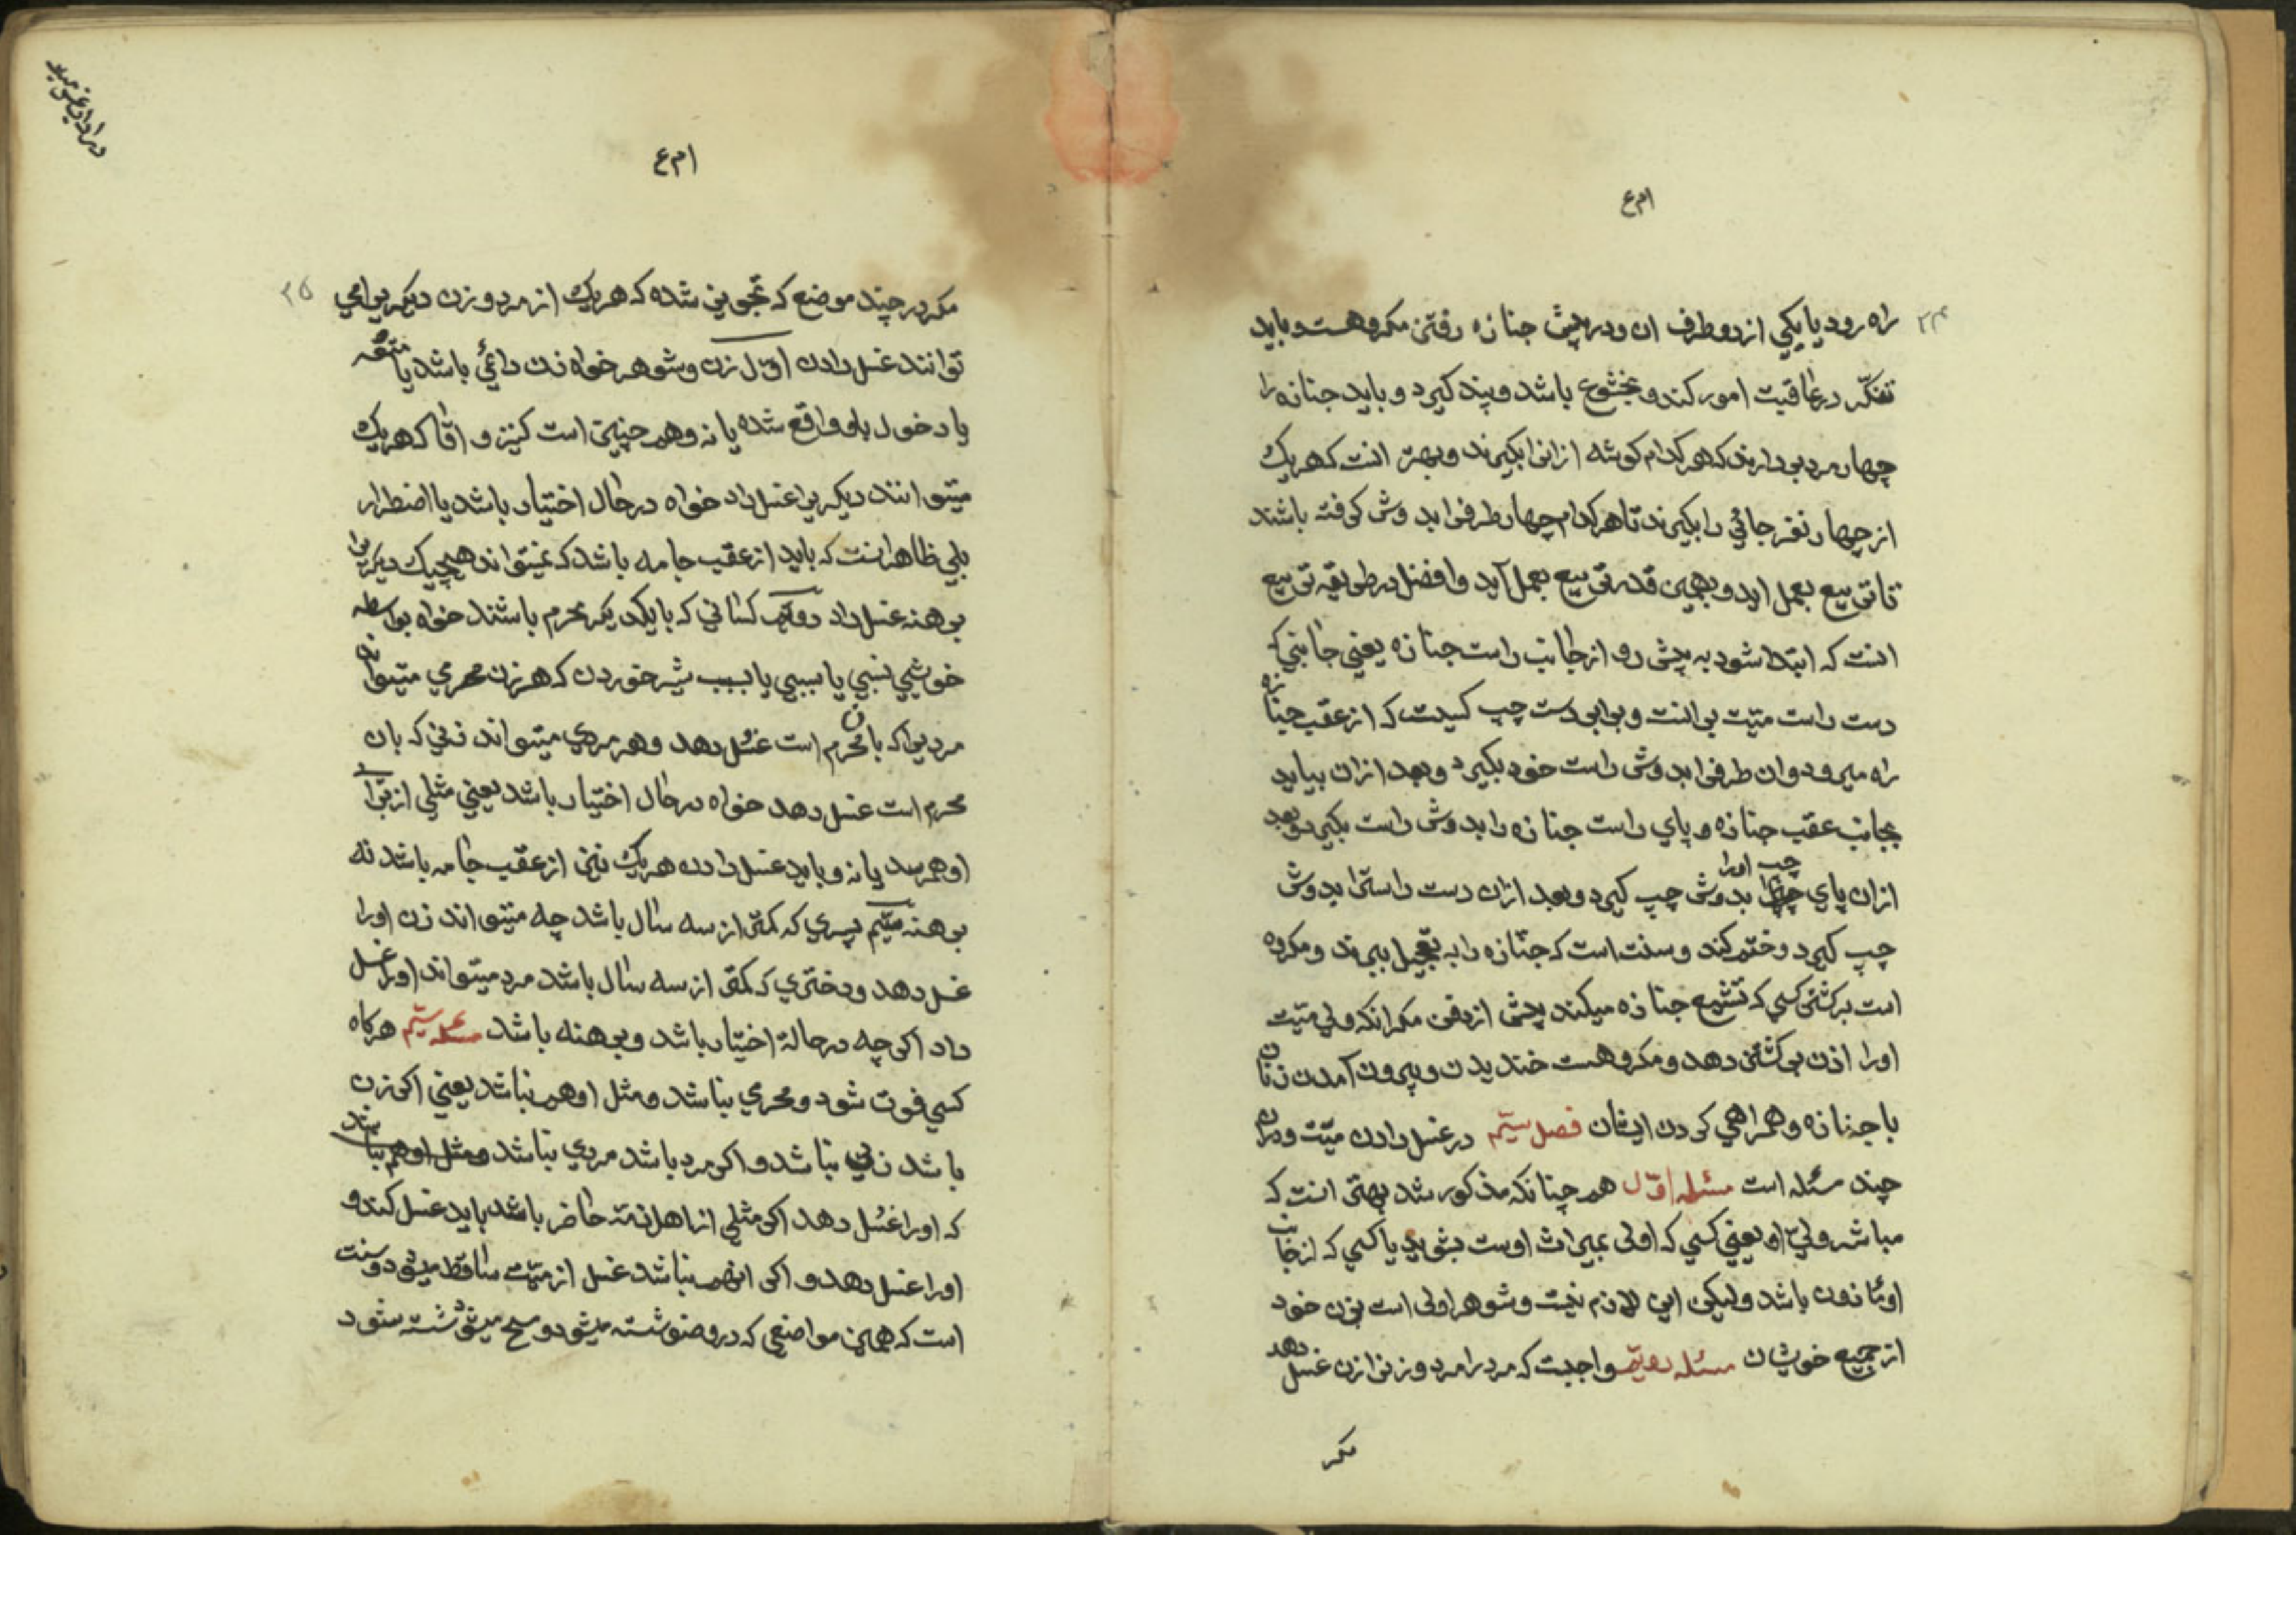 ام ع
۲۴
راه رود یا یکی از دو طرف ان و در پیش جنازه رفتن مکروهست و باید
تفکّر در عاقبت امور کند و بخشوع باشد و پند کیرد و باید جنازه را
چهار مرد بردارند که هر کدام کوشه ازانرا بکیرند و بهتر انست که هریک
از چهار نفر جائي را بکیرند تا هر کدام چهار طرفرا بدوش کرفته باشند
تا تربیع بعمل اید و بهمین قدر تربیع بعمل آید و افضل در طریقه تربیع
انست که ابتدا شود به پیش رو از جانب راست جنازه یعني جانبي که
دست راست میّت برانست و برابر دست چپ کسیت که از عقب جنازه
راه میرود و ان طرفرا بدوش راست خود بکیرد و بعد ازان بیاید
بجانب عقب جنازه و پاي راست جنازه را بدوش راست بکیرد و بعد
ازان پاي چپ اورا بدوش چپ کیرد و بعد ازان دست راسترا بدوش
چپ کیرد و ختم کند و سنت است که جنازه را به تعجیل ببرند و مکروه
است برکشتن کسي که تشییع جنازه میکند پیش از دفن مکر انکه ولي میّت
اورا اذن برکشتن دهد و مکروهست خندیدن و بیرون آمدن زنان
با جنازه و همراهي کردن ایشان فصل سیّم در غسل دادن میّت و دران
چند مسئله است مسئله اوّل همچنانکه مذکور شد بهتر انست که
مباشر وليّ او یعني کسي که اولی بمیراث اوست بشوید یا کسي که از جانب
او ماذون باشد و لیکن این لازم نیست و شوهر اولی است بزن خود
از جمیع خویشان مسئله دویّم واجبست که مرد را مرد و زنرا زن غسل دهد
مکر
ام ع
۲۵
مکر در چند موضع که تجویز شده که هریک از مرد و زن دیکریرا می
توانند غسل دادن اوّل زن و شوهر خواه زن دائمي باشد یا متعه
یا دخول باو واقع شده یا نه و همچنین است کنیز و اقا که هریک
میتوانند دیکریرا غسل داد خواه در حال اختیار باشد یا اضطرار
بلي ظاهر انست که باید از عقب جامه باشد که نمیتواند هیچیک دیکریرا
برهنه غسل داد دویّم کساني که با یکدیکر محرم باشند خواه بواسطه
خویشي نسبي یا سببي یا بسبب شیر خوردن که هر زن محرمي میتواند
مردیرا که باان محرم است غسل دهد و هر مردي میتواند زني که بان
محرم است غسل دهد خواه در حال اختیار باشد یعني مثلي از براي
او بهمرسد یا نه و باید غسل دادن هریک نیز از عقب جامه باشد نه
برهنه سیّم پسري که کمتر از سه سال باشد چه میتواند زن اورا
غسل دهد و دختري که کمتر از سه سال باشد مرد میتواند اورا غسل
داد اکرچه در حالة اختیار باشد و برهنه باشد مسئله سیّم هرکاه
کسي فوت شود و محرمي نباشد و مثل او هم نباشد یعني اکر زن
باشد زني نباشد و اکر مرد باشد مردي نباشد و مثل او هم نباشد
که اورا غسل دهد اکر مثلي از اهل ذمّه حاضر باشد باید غسل کند و
اورا غسل دهد و اکر انهم نباشد غسل از میّت ساقط میشود و سنت
است که همین مواضعي که در وضو شسته میشود و مسح میشود شسته شود